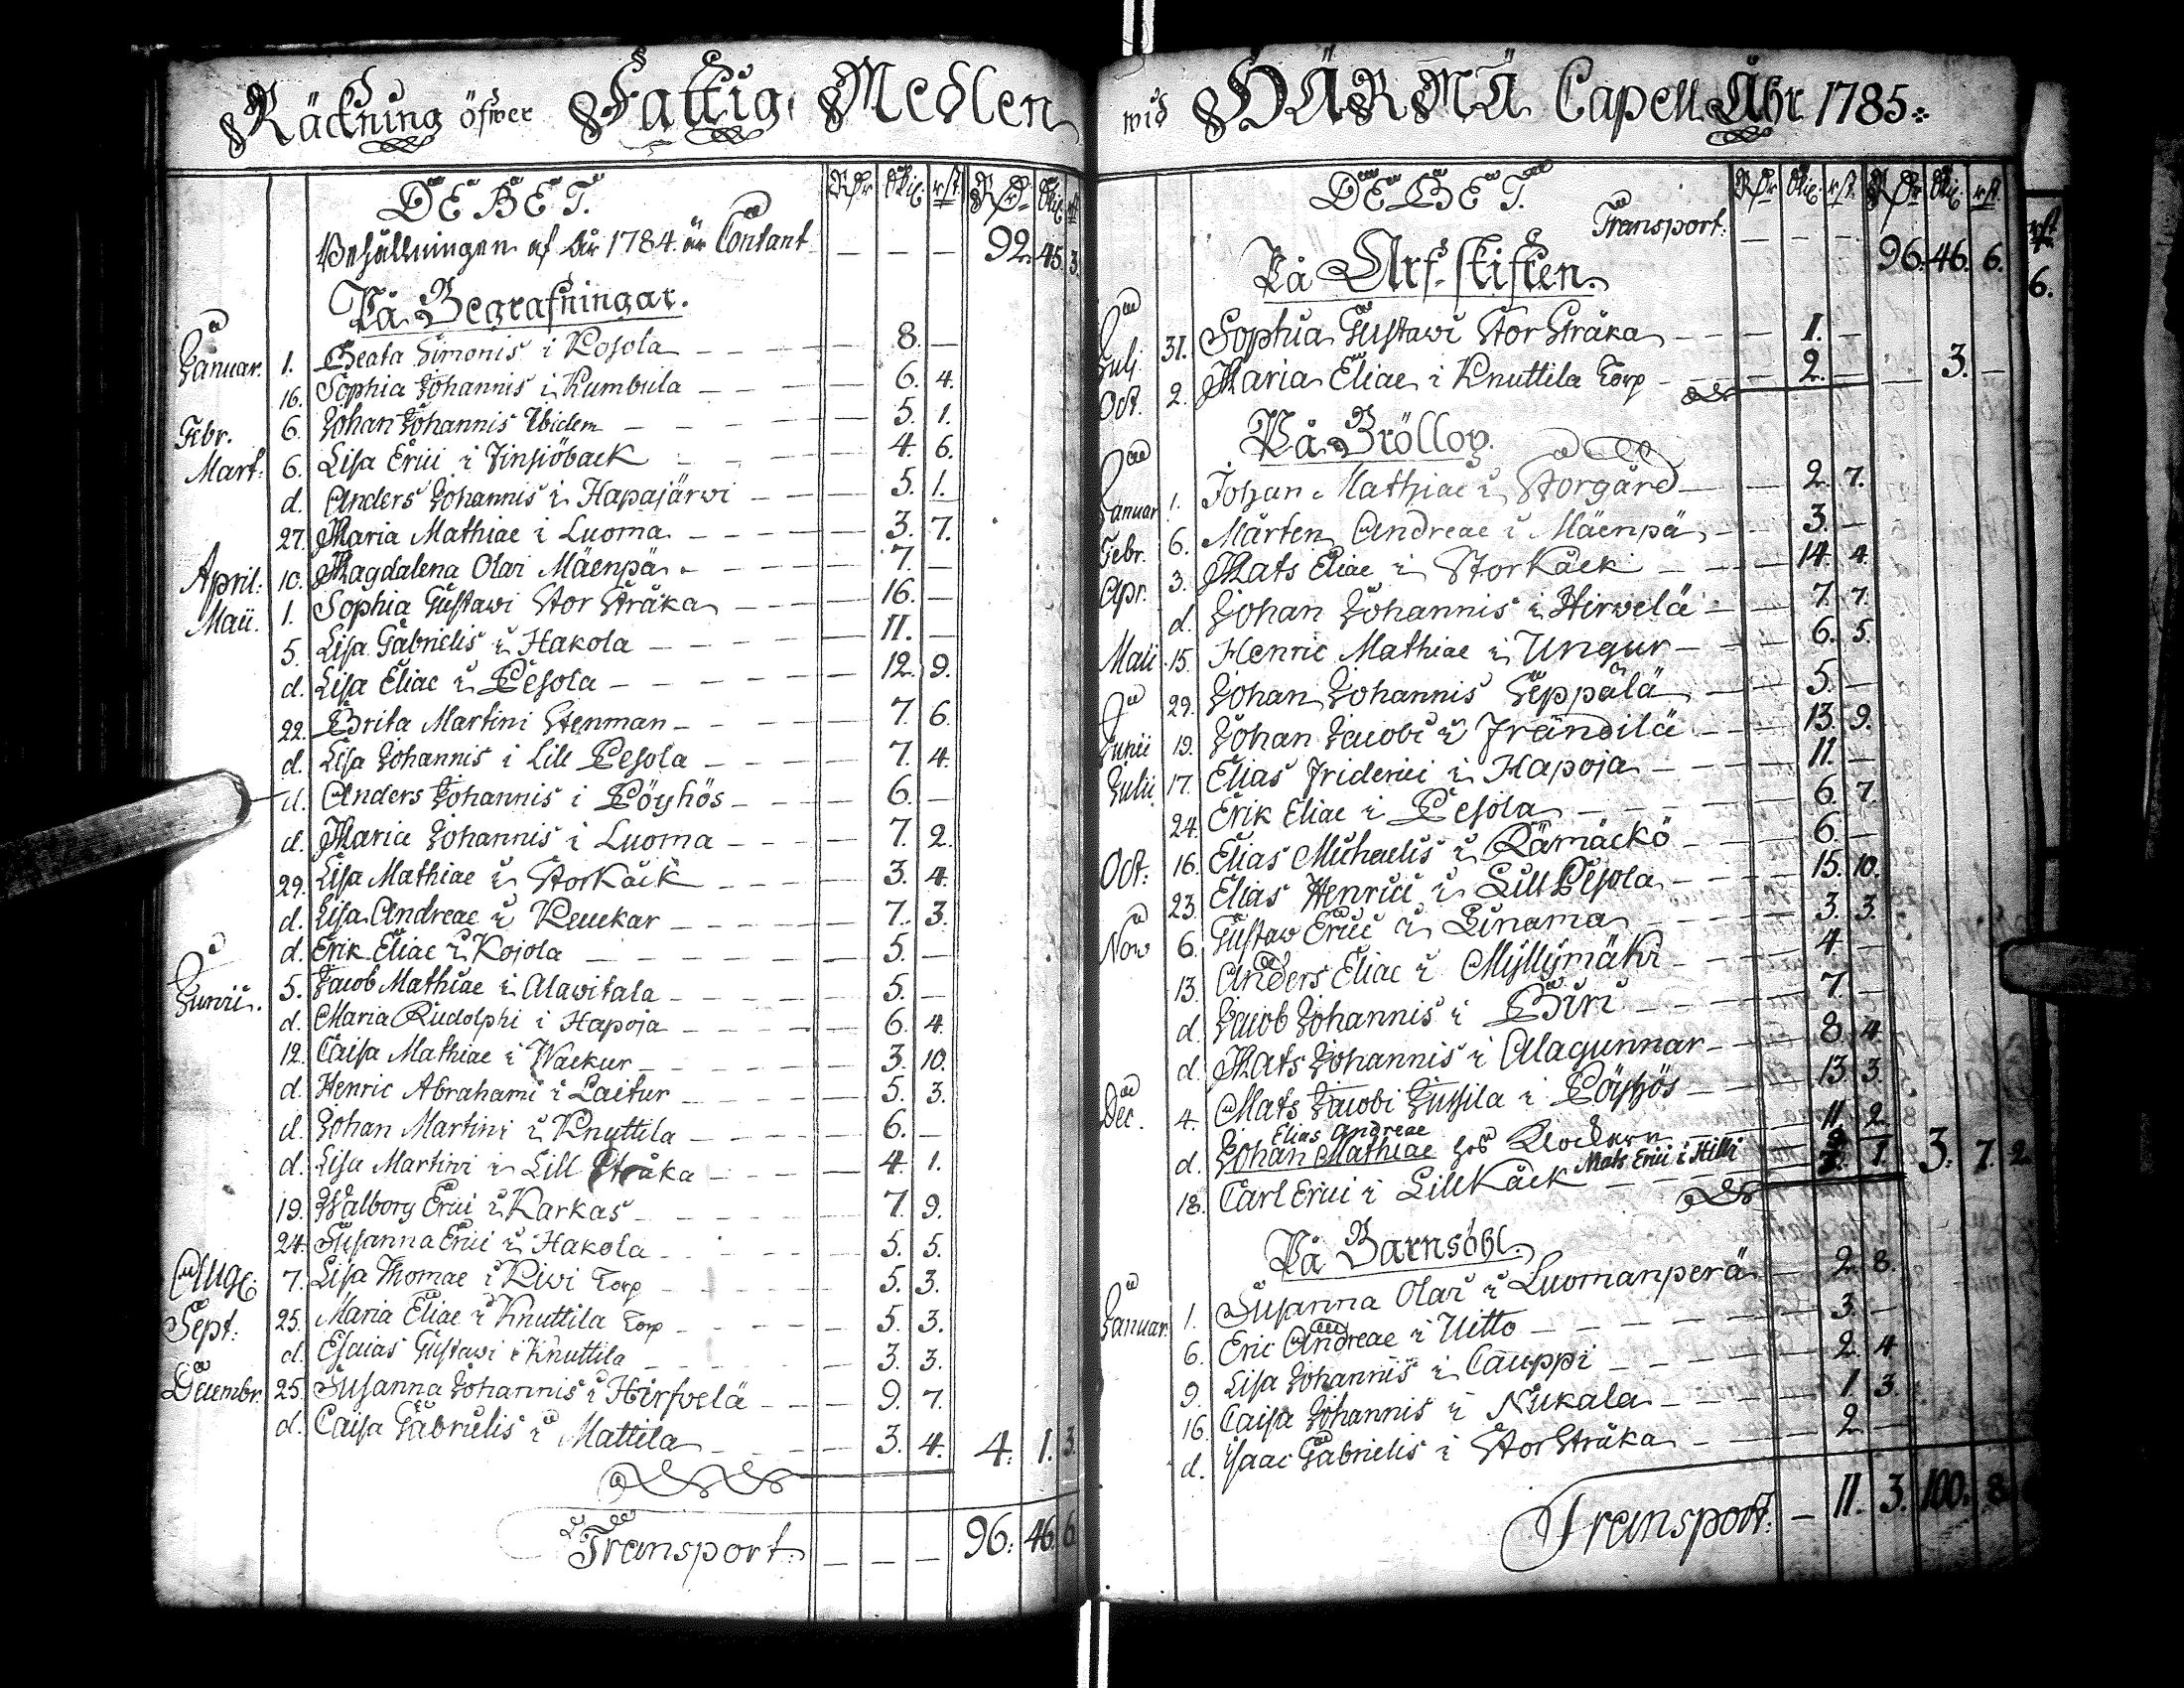 Räckning öfwer Fattig Medlen
DEBET. RDr Skil. rst. RDr Skil. rst
Behållningen af år 1784. är Contant — — — 92. 45. 3.
På Begrafningar.
Januar. 1. Beata Simonis i Kojola — 8. —
16. Sophia Johannis i Kumbula — 6. 4.
Febr. 6. Johan Johannis Ibidem — 5. 1.
Mart: 6. Lisa Erici i Finsiöback — 4. 6.
d. Anders Johannis i Hapajärwi — 5. 1.
27. Maria Mathiae i Luoma — 3. 7.
April: 10. Magdalena Olai Mäenpä — 7. —
Maii. 1. Sophia Gustawi Stor Stråka — 16. —
5. Lisa Gabrielis i Hakola — 11. —
d. Lisa Eliae i Pesola — 12. 9.
22. Brita Martini Stenman — 7. 6.
d. Lisa Johannis i Lill Pesola — 7. 4.
d. Anders Johannis i Pöyhös — 6. —
d. Maria Johannis i Luoma — 7. 2.
29. Lisa Mathiae i Storkåck — 3. 4.
d. Lisa Andreae i Keuckar — 7. 3.
d. Erik Eliae i Kojola — 5. —
Junii. 5. Jacob Mathiae i Alawitala — 5. —
d. Maria Rudolphi i Hapoja — 6. 4.
12. Caisa Mathiae i Wackur — 3. 10.
d. Henric Abrahami i Laitur — 5. 3.
d. Johan Martini i Knuttila — 6. —
d. Lisa Martini i Lill Stråka — 4. 1.
19. Walborg Erici i Karkas — 7. 9.
24. Susanna Erici i Hakola — 5. 5.
Aug: 7. Lisa Thomae i Kiwi Torp — 5. 3.
Sept: 25. Maria Eliae i Knuttila Torp — 5. 3.
d. Esaias Gustawi i Knuttila — 3. 3.
Decembr. 25. Susanna Johannis i Hirfwelä — 9. 7.
d. Caisa Gabrielis i Mattila — 3. 4. 4. 1. 3.
Transport: — — — 96. 46. 6
wid HÄRMÄ Capell Åhr 1785.
DEBET. RDr Skil. rst. RDr Skil. rst.
Transport: — — — 96. 46. 6.
På Arf-skiften.
Julj 31. Sophia Gustawi Stor Stråka — 1. —
Oct. 2. Maria Eliae i Knuttila Torp — 2. — — 3. —
På Bröllop.
Januar 1. Johan Mathiae i Storgård — 2. 7.
Febr. 6. Mårten Andreae i Mäenpä — 3. —
Apr. 3. Mats Eliae i Storkåck — 14. 4.
d. Johan Johannis i Hirwelä — 7. 7.
Maii 15. Henric Mathiae i Ungur — 6. 5.
29. Johan Johannis Seppälä — 5. —
Junii 19. Johan Jacobi i Frändilä — 13. 9.
Julii 17. Elias Friderici i Hapoja — 11. —
24. Erik Eliae i Pesola — 6. 7.
Oct: 16. Elias Michaelis i Rämäckö — 6. —
23. Elias Henrici i Lill Pesola — 15. 10.
Now 6. Gustaw Erici i Linama — 3. 3.
13. Anders Eliae i Myllymäki — 4 —
d. Jacob Johannis i Biri — 7. —
d. Mats Johannis i Alagunnar — 8. 4.
Dec. 4. Mats Jacobi Jussila i Pöyhös — 13. 3.
Elias Andreae
d. Johan Mathiae hos Klockarn — 11. 2.
Mats Erici i Hilli
18. Carl Erici i Lillkåck — 1. 3. 7. 2
På Barnsöhl.
Januar. 1. Susanna Olai i Luomanperä — 2. 8.
6. Eric Andreae i Uitto — 3. —
9. Lisa Johannis i Cauppi — 2. 4
16. Caisa Johannis i Niukala — 1. 3.
d. Isaac Gabrielis i Stor Stråka — 2 —
Transport: — 11. 3. 100. 8.
rst
6.